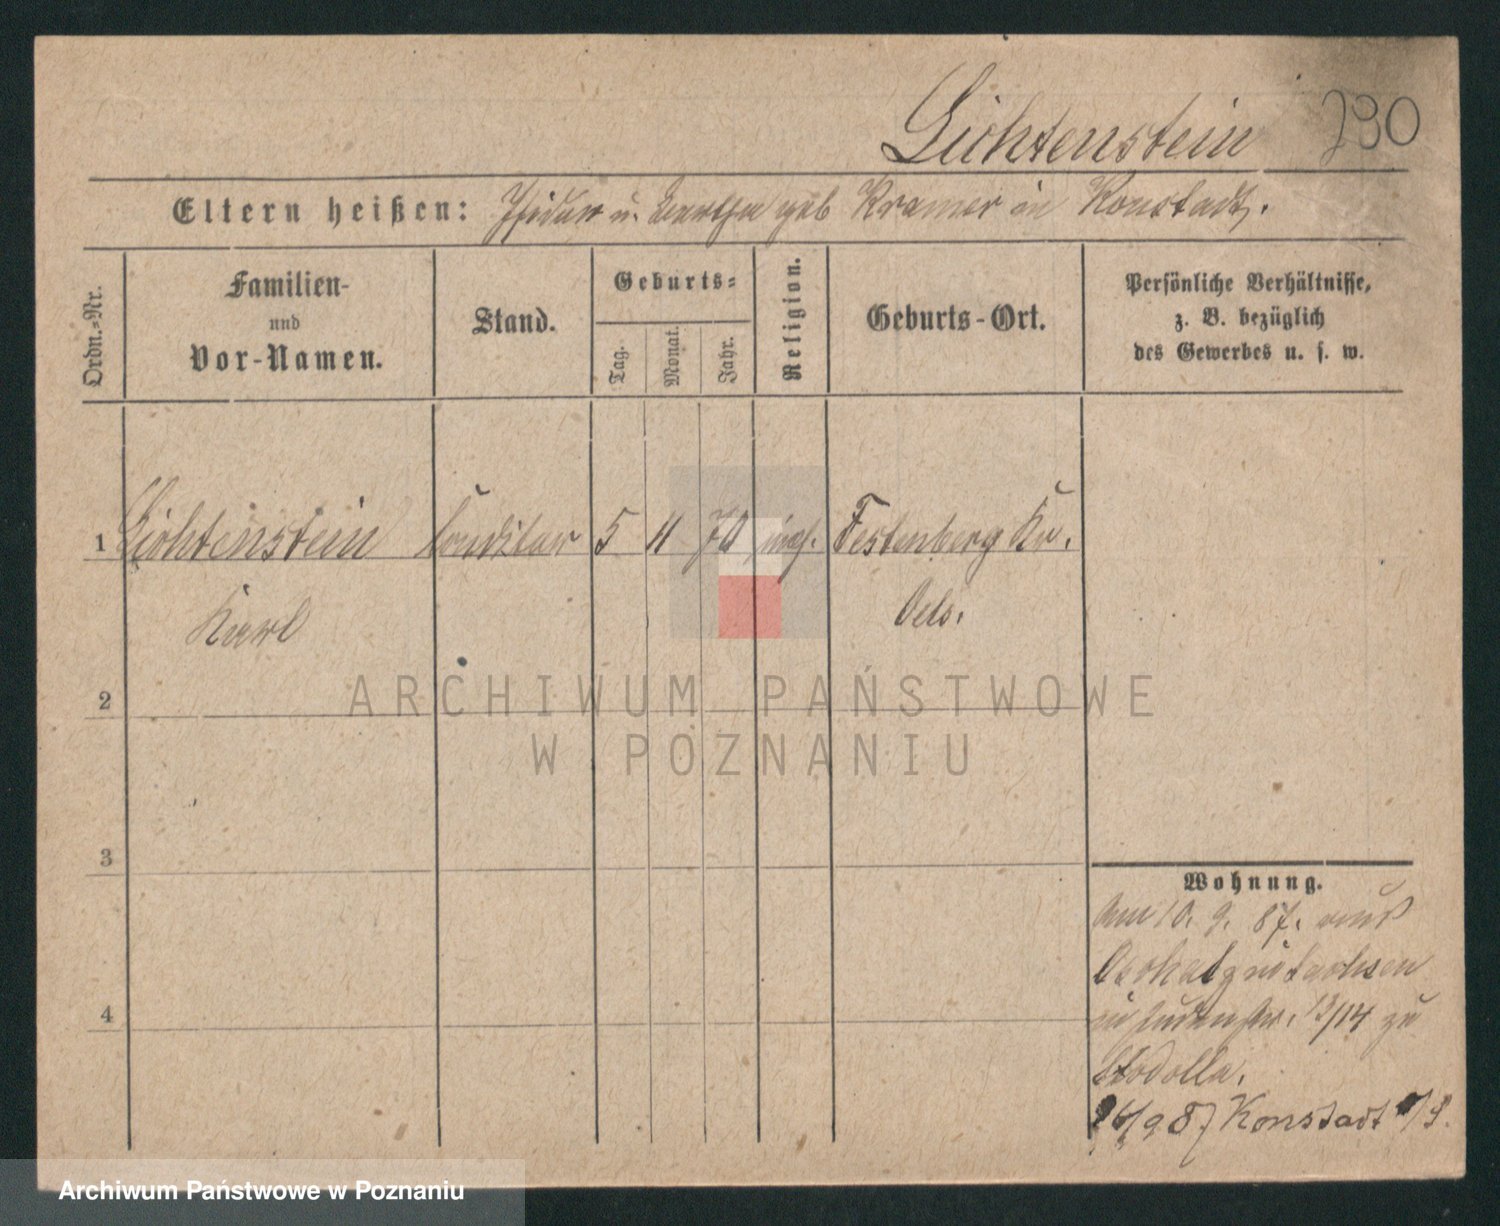 Lichtenstein 230
Eltern heißen: Isidor u. Bertha geb Kramer in Konstadt.
Ordn.-Nr.
Familien-
und
Vor-Namen.
Stand.
Geburts-
Tag.
Monat.
Jahr.
Religion.
Geburts-Ort.
Persönliche Verhältnisse,
z. B. bezüglich
des Gewerbes u. s. w.
1 Lichtenstein Conditor 5 11 70 mos. Festenberg Kr.
Karl Oels.
2
ARCHIWUM PAŃSTWOWE
W POZNANIU
3
Wohnung.
Am 10. 9. 87. aus
in Judenstr. 13/14 zu
Stodolla.
Konstadt
4
Archiwum Państwowe w Poznaniu